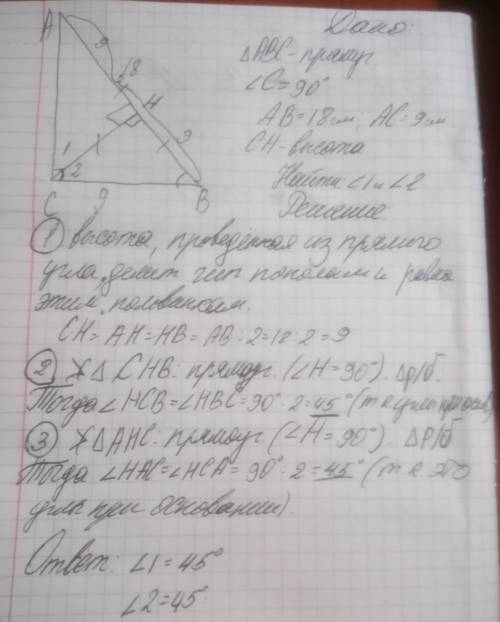 Дано:
A
△ABC - прямоуг
9
18
∠C = 90°
AB = 18 см, AC = 9 см
H
CH - высота
9
1
2
Найти ∠1 и ∠2
C 9 B
Решение
① высота, проведённая из прямого
угла, делит гип пополам и равна
этим половинкам.
CH = AH = HB = AB : 2 = 18 : 2 = 9
② △ CHB: прямоуг. (∠H = 90°). △ р/б.
Тогда ∠HCB = ∠HBC = 90° : 2 = 45° (т к углы при основ)
③ △AHC: прямоуг. (∠H = 90°). △ Р/б
Тогда ∠HAC = ∠HCA = 90° : 2 = 45° (т к это
углы при основании).
Ответ: ∠1 = 45°
∠2 = 45°